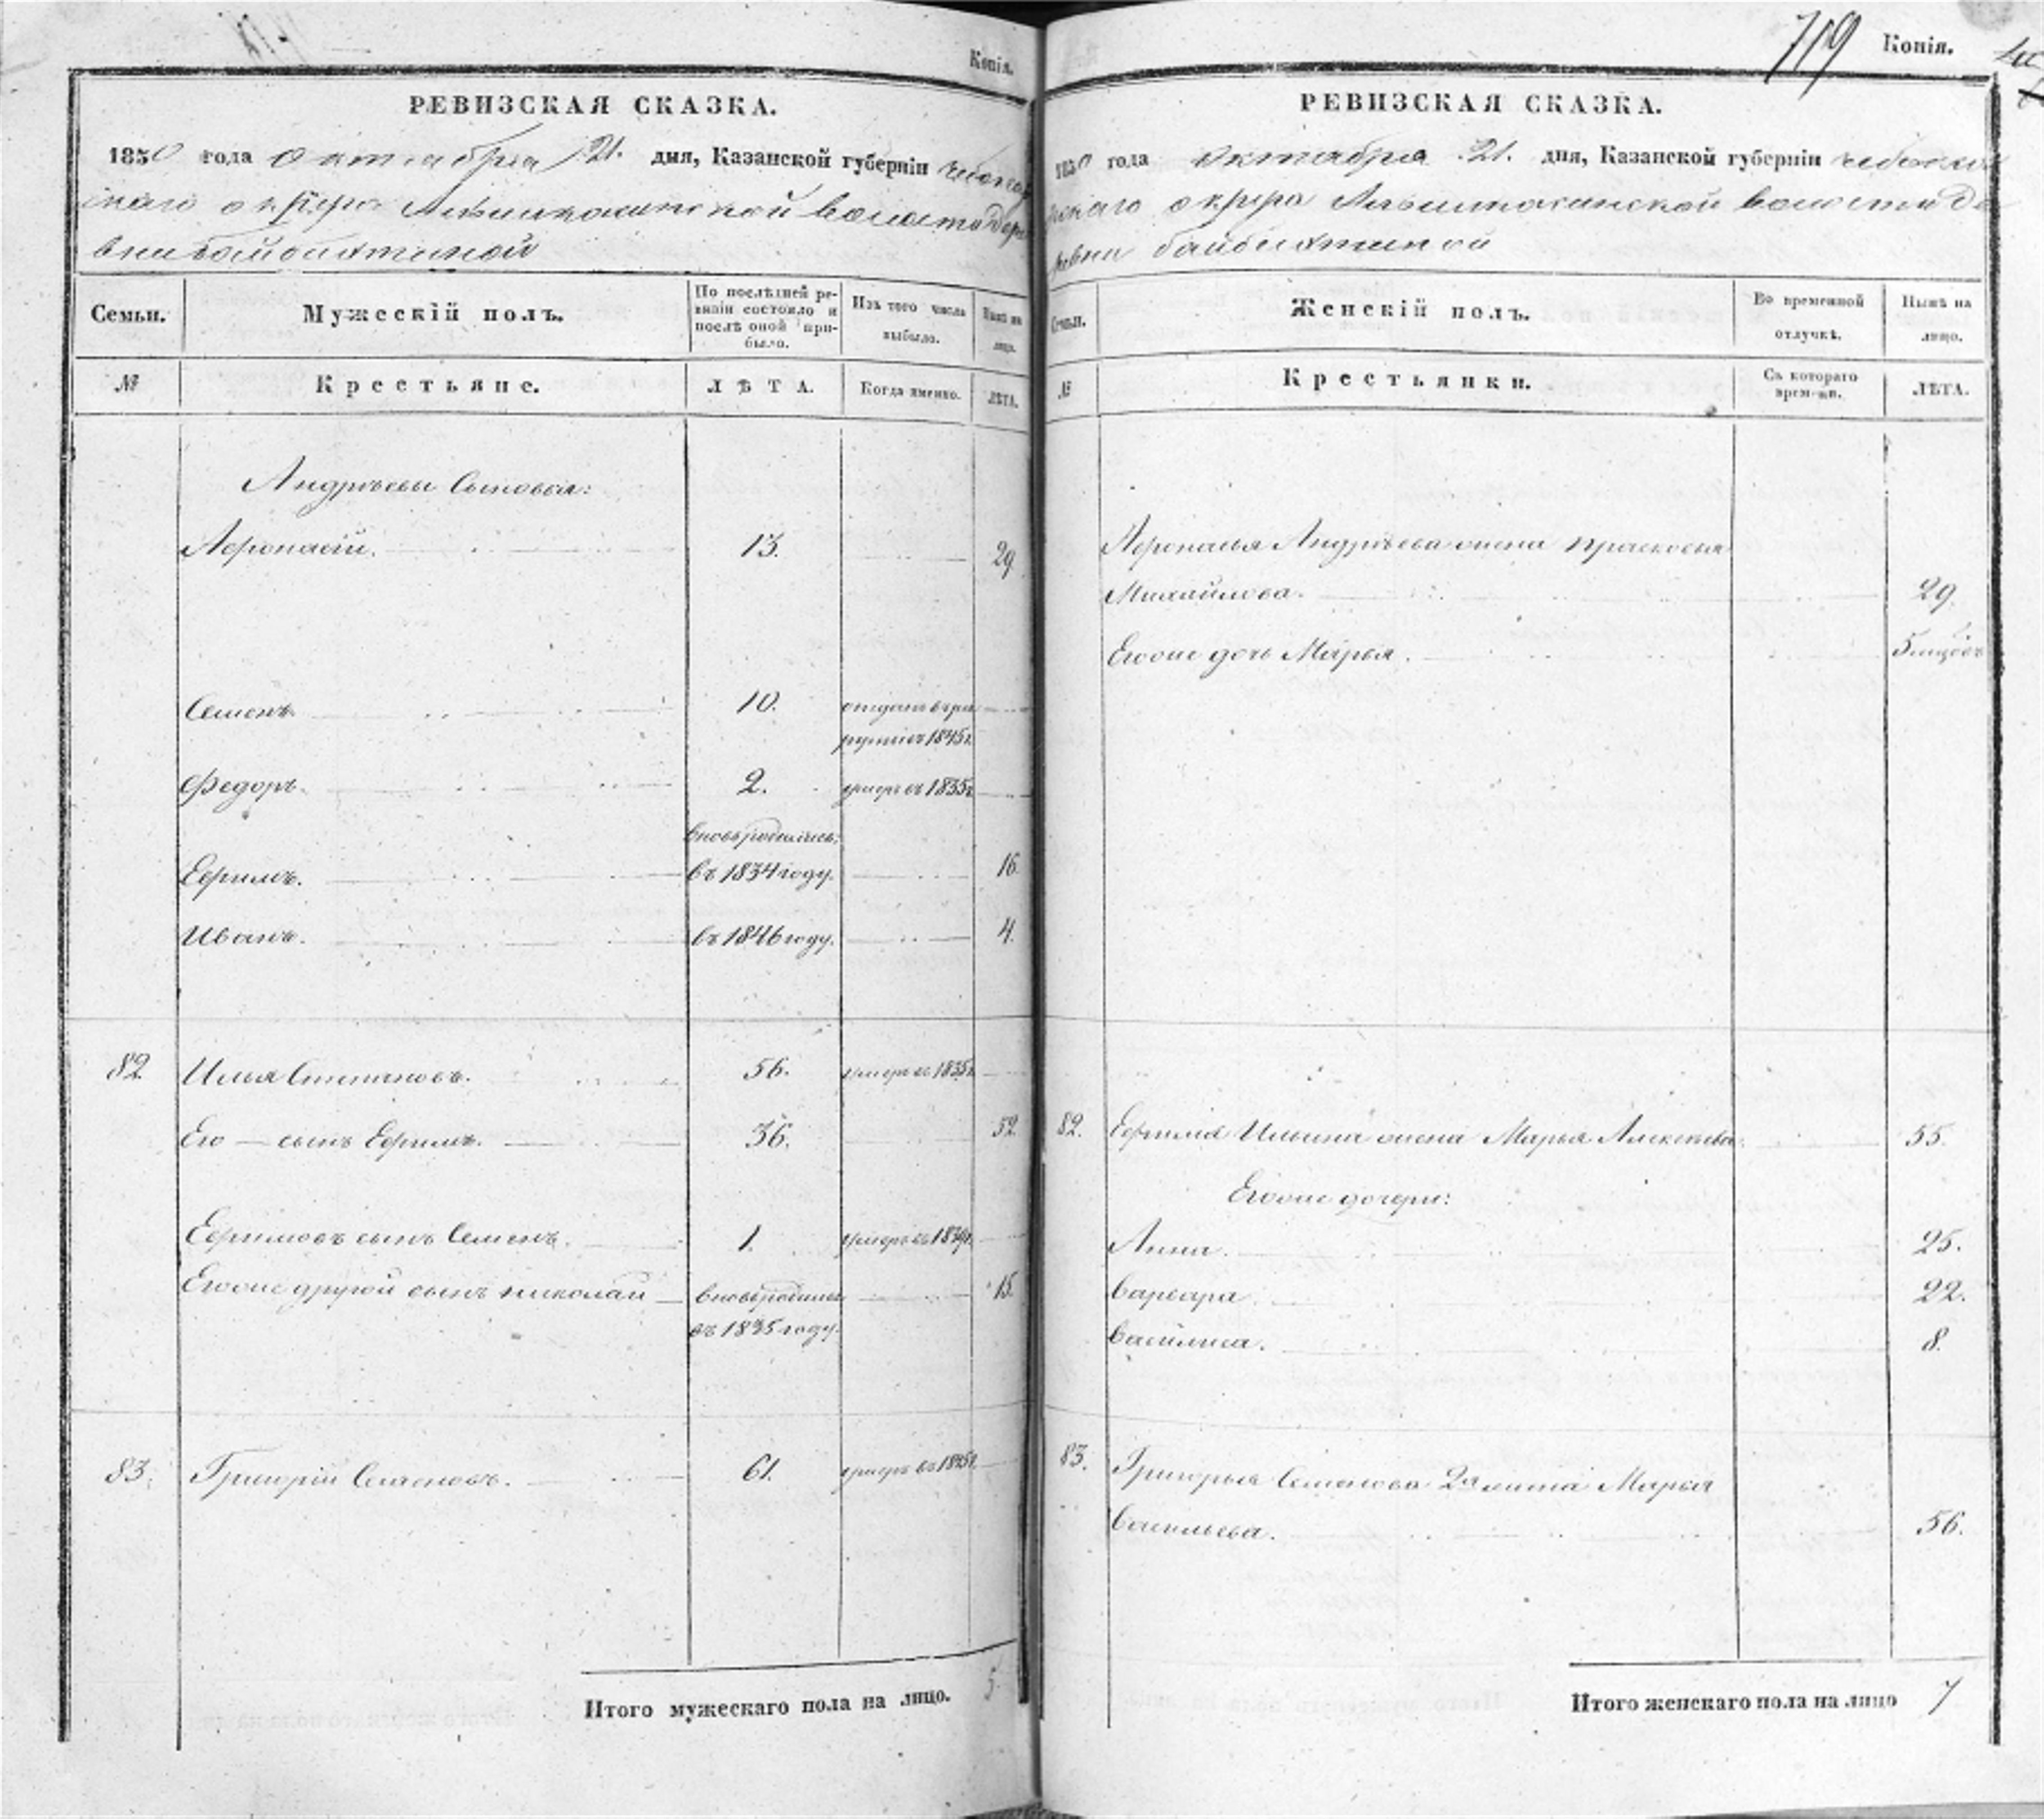 Копія.
РЕВИЗСКАЯ СКАЗКА.
1850 года октября 21. дня, Казанской губерніи чебокса
скаго округа волости дере
вни байбахтиной
Семьи.
Мужескій полъ.
По послѣдней ре-
визіи состояло и
послѣ оной при-
было.
Изъ того числа
выбыло.
Нынѣ на
лицо.
№
Крестьяне.
ЛѢТА.
Когда именно.
ЛѢТА.
Андреевы сыновья:
Афонасій. 13. 29
Семенъ. 10. отданъ въ ре
круты въ 1845г.
Федоръ. 2. умеръ въ 1835г.
вновь родились:
Ефимъ. въ 1834 году. 16.
Иванъ. въ 1846 году. 4.
82 Илья Степановъ. 56. умеръ въ 1835г.
Его — сынъ Ефимъ. 36. 52.
Ефимовъ сынъ Семенъ. 1. умеръ въ
Егоже другой сынъ николай вновь родился 15.
въ 1835 году.
83. Григорій Семеновъ. 61. умеръ въ 1845г.
Итого мужескаго пола на лицо. 5
719 Копія.
РЕВИЗСКАЯ СКАЗКА.
1850 года октября 21. дня, Казанской губерніи чебокса
рскаго округа волости де
ревни байбахтиной
Семьи.
Женскій полъ.
Во временной
отлучкѣ.
Нынѣ на
лицо.
№
Крестьянки.
Съ котораго
времени.
ЛѢТА.
Афонасья Андреева жена прасковья
Михайлова. 29.
Егоже дочь Марья. 5 мѣсяцовъ
82. Ефима Ильина жена Марья Алексѣева. 55.
Егоже дочери:
Анна. 25.
варвара 22.
василиса. 8.
83. Григорья Семенова 2я жена Марья
васильева. 56.
Итого женскаго пола на лицо 7